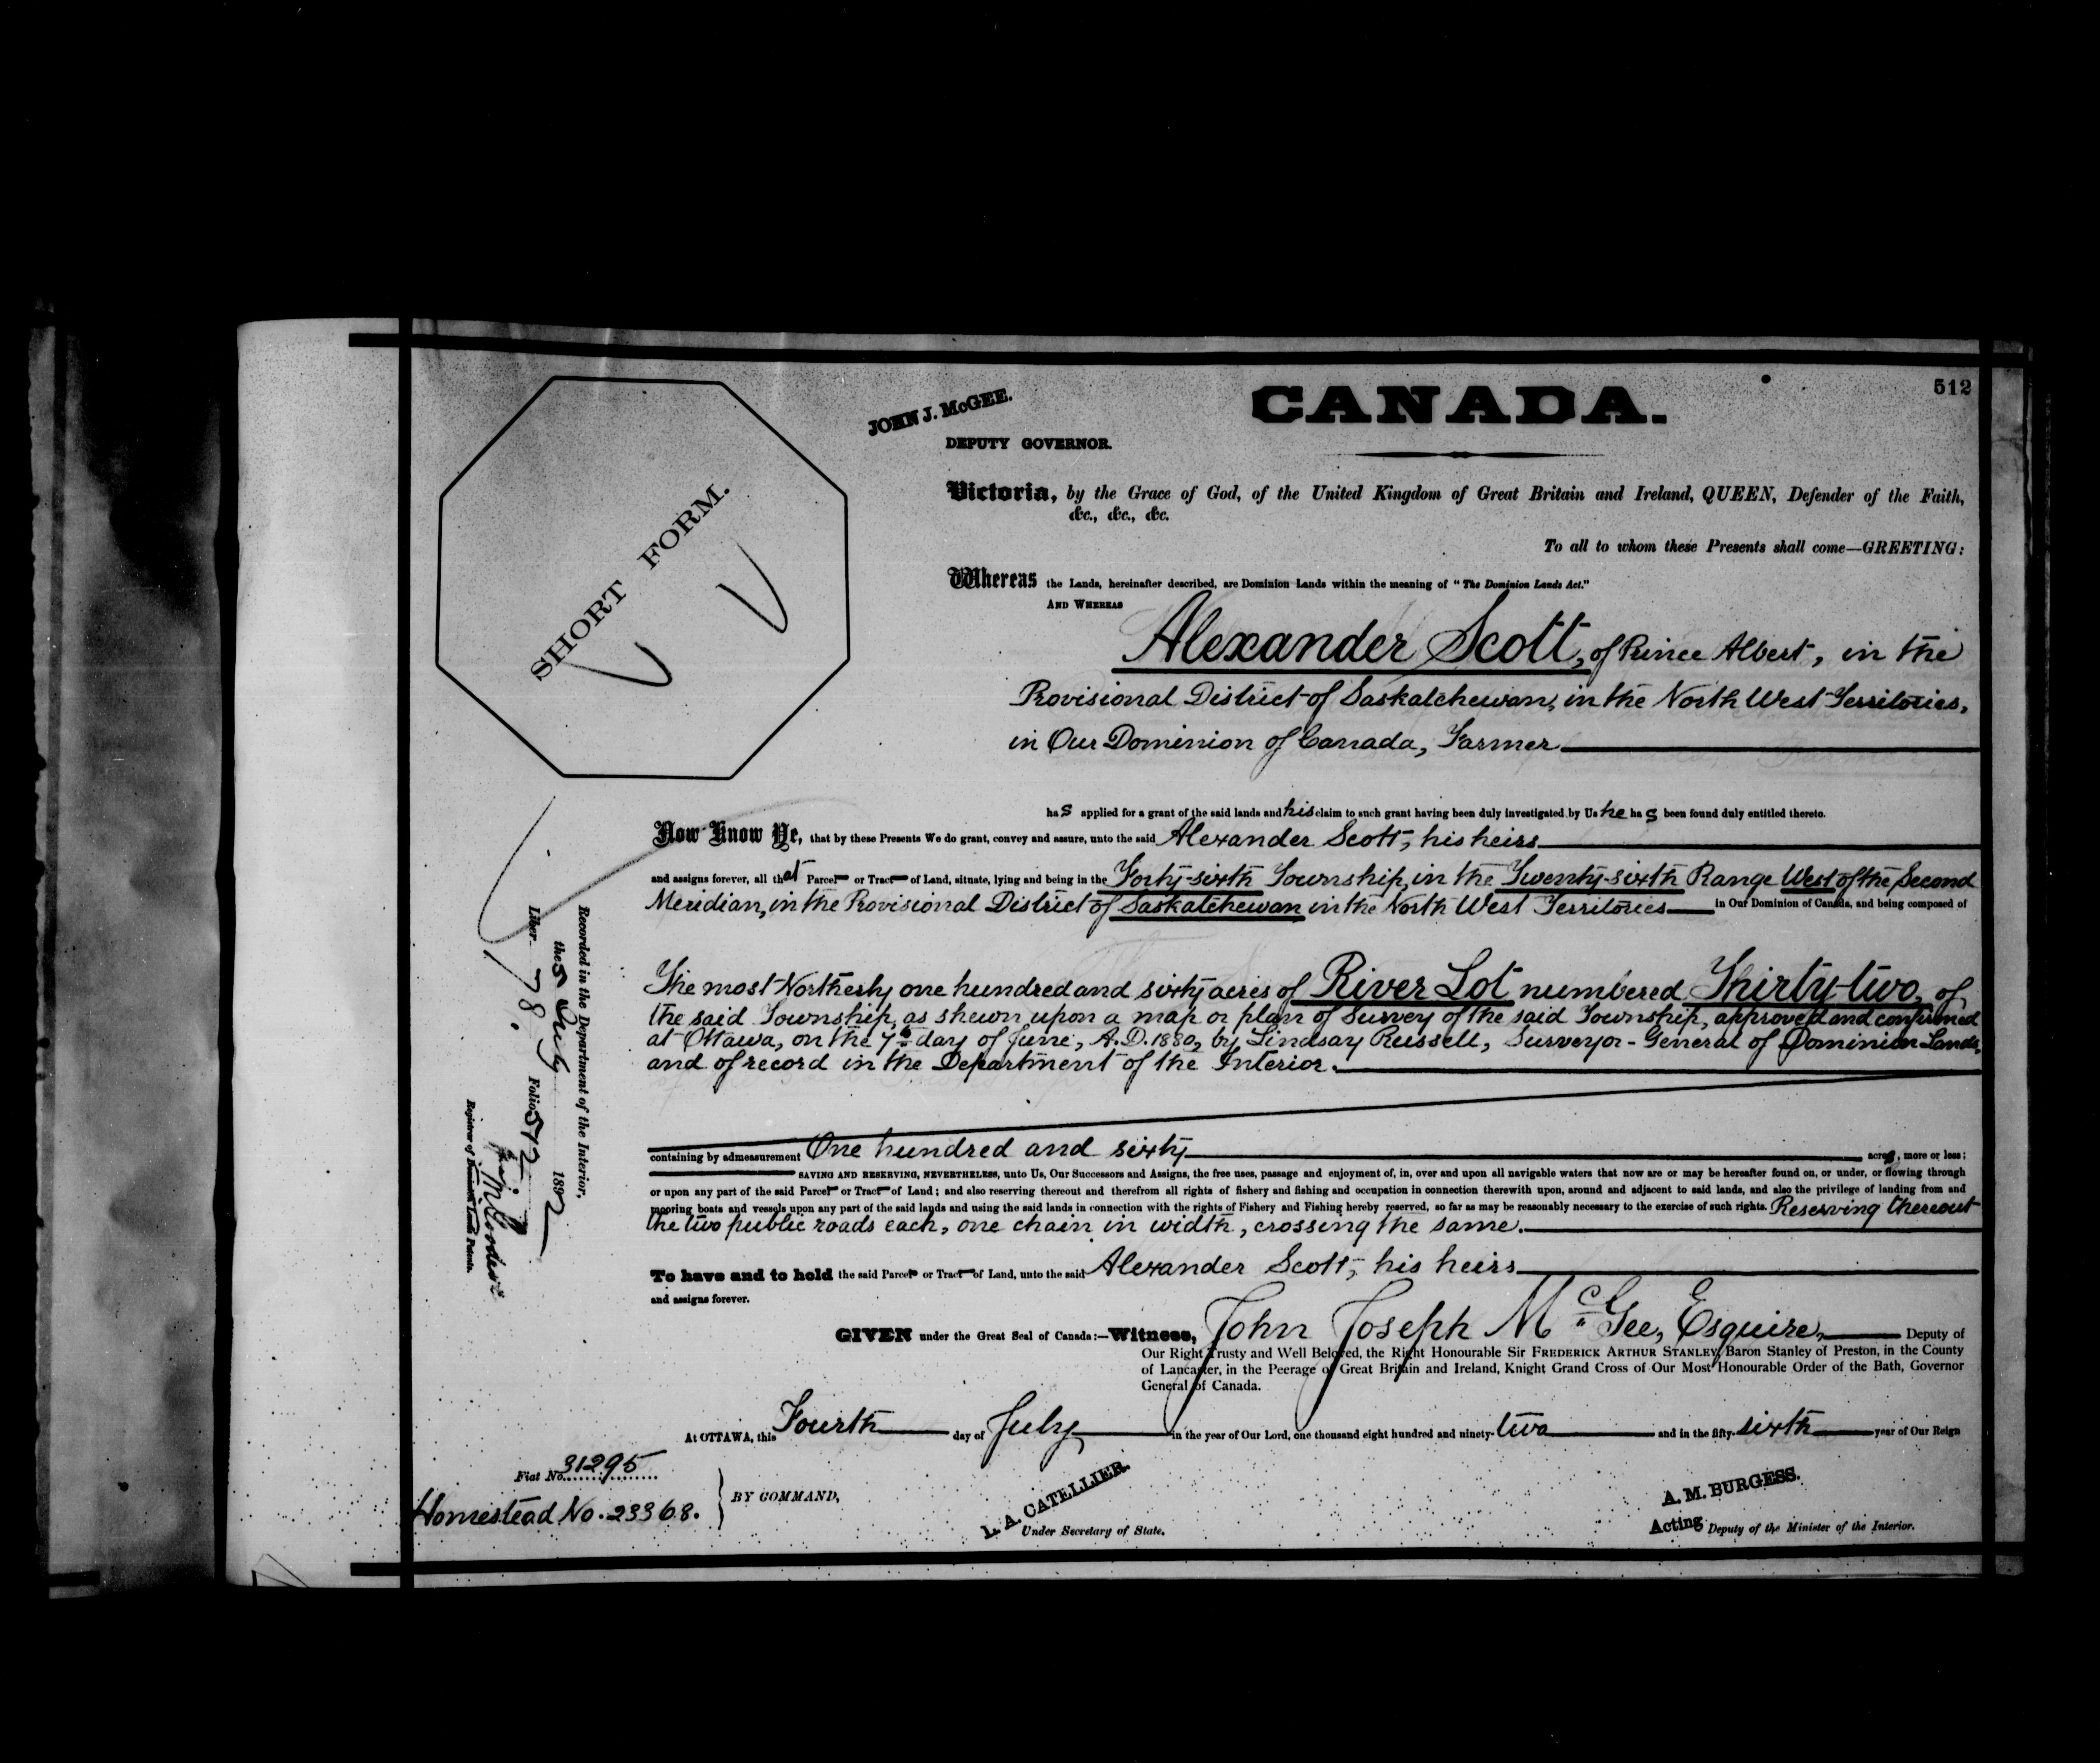 512
CANADA.
JOHN J. McGEE.
DEPUTY GOVERNOR.
SHORT FORM.
Victoria, by the Grace of God, of the United Kingdom of Great Britain and Ireland, QUEEN, Defender of the Faith,
&c., &c., &c.
To all to whom these Presents shall come—GREETING:
Whereas the Lands, hereinafter described, are Dominion Lands within the meaning of "The Dominion Lands Act."
AND WHEREAS
Alexander Scott, of Prince Albert, in the
Provisional District of Saskatchewan, in the North West Territories,
in Our Dominion of Canada, Farmer
has applied for a grant of the said lands and his claim to such grant having been duly investigated by Us he has been found duly entitled thereto.
Now Know Ye, that by these Presents We do grant, convey and assure, unto the said Alexander Scott, his heirs
and assigns forever, all that Parcel or Tract of Land, situate, lying and being in the Forty-sixth Township, in the Twenty-sixth Range West of the Second
Meridian, in the Provisional District of Saskatchewan in the North West Territories in Our Dominion of Canada, and being composed of
The most Northerly one hundred and sixty acres of River Lot numbered Thirty-two, of
the said Township, as shewn upon a map or plan of Survey of the said Township, approved and confirmed
at Ottawa, on the 7th day of June, A.D. 1880, by Lindsay Russell, Surveyor-General of Dominion Lands,
and of record in the Department of the Interior.
containing by admeasurement One hundred and sixty acres, more or less;
SAVING AND RESERVING, NEVERTHELESS, unto Us, Our Successors and Assigns, the free uses, passage and enjoyment of, in, over and upon all navigable waters that now are or may be hereafter found on, or under, or flowing through
or upon any part of the said Parcel or Tract of Land; and also reserving thereout and therefrom all rights of fishery and fishing and occupation in connection therewith upon, around and adjacent to said lands, and also the privilege of landing from and
mooring boats and vessels upon any part of the said lands and using the said lands in connection with the rights of Fishery and Fishing hereby reserved, so far as may be reasonably necessary to the exercise of such rights. Reserving thereout
the two public roads each, one chain in width, crossing the same.
To have and to hold the said Parcel or Tract of Land, unto the said Alexander Scott, his heirs
and assigns forever.
GIVEN under the Great Seal of Canada:—Witness, John Joseph McGee, Esquire, Deputy of
Our Right Trusty and Well Beloved, the Right Honourable Sir FREDERICK ARTHUR STANLEY, Baron Stanley of Preston, in the County
of Lancaster, in the Peerage of Great Britain and Ireland, Knight Grand Cross of Our Most Honourable Order of the Bath, Governor
General of Canada.
At OTTAWA, this Fourth day of July in the year of Our Lord, one thousand eight hundred and ninety-two and in the fifty-sixth year of Our Reign
Fiat No. 31295
Homestead No. 23368.
BY COMMAND,
L. A. CATELLIER.
Under Secretary of State.
A. M. BURGESS.
Acting Deputy of the Minister of the Interior.
Recorded in the Department of the Interior,
the 5 July 1892
Liber 78. Folio 512
Registrar of Dominion Lands Patents.